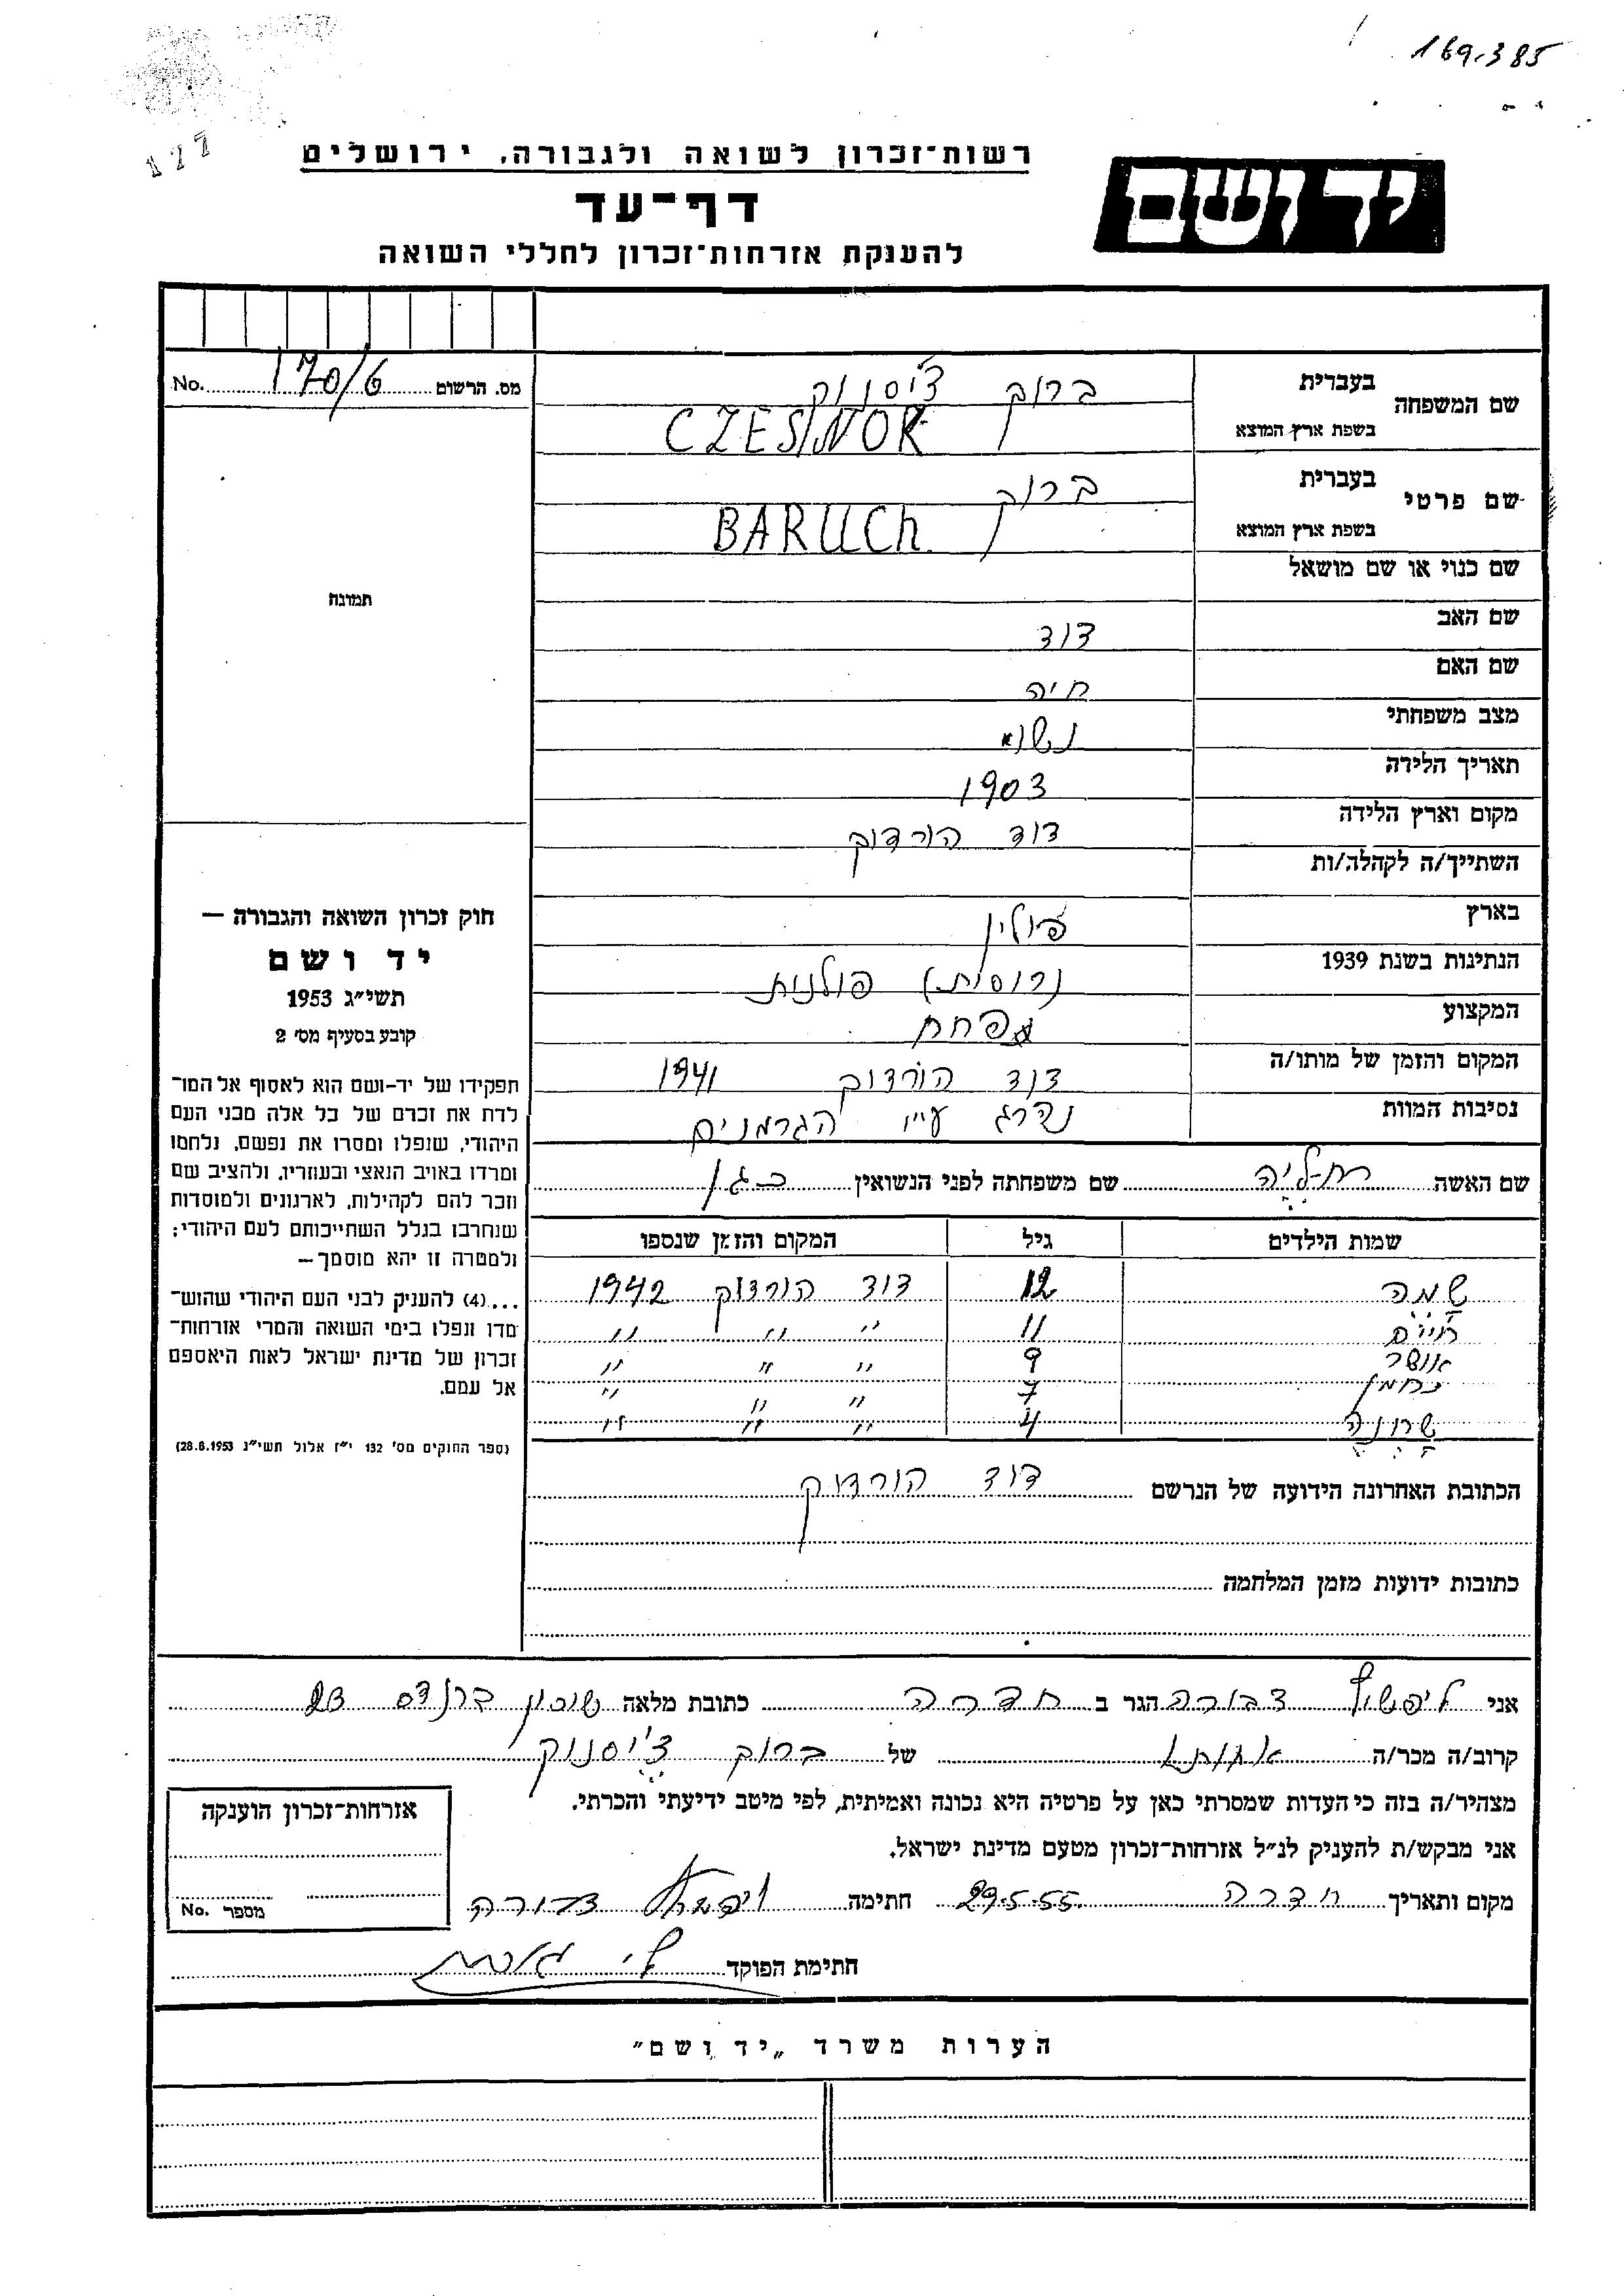 169.385
177
רשות־זכרון לשואה ולגבורה, ירושלים
דף־עד
להענקת אזרחות־זכרון לחללי השואה
יד ושם
מס. הרשום 170/6 No.
שם המשפחה
בעברית ברוך צ'יסנוק
בשפת ארץ המוצא CZESNOK
שם פרטי
בעברית ברוך
בשפת ארץ המוצא BARUCh
שם כנוי או שם מושאל
שם האב דוד
שם האם חיה
מצב משפחתי נשוי
תאריך הלידה 1903
מקום וארץ הלידה דוד הורדוק
השתייך/ה לקהלה/ות
בארץ פולין
הנתינות בשנת 1939 (רוסית) פולנית
המקצוע
המקום והזמן של מותו/ה דוד הורדוק 1941
נסיבות המוות נהרג ע״י הגרמנים
תמונה
חוק זכרון השואה והגבורה —
יד ושם
תשי״ג 1953
קובע בסעיף מס׳ 2
תפקידו של יד-ושם הוא לאסוף אל המו־
לדת את זכרם של כל אלה מבני העם
היהודי, שנפלו ומסרו את נפשם, נלחמו
ומרדו באויב הנאצי ובעוזריו, ולהציב שם
וזכר להם לקהילות, לארגונים ולמוסדות
שנחרבו בגלל השתייכותם לעם היהודי;
ולמטרה זו יהא מוסמך—
...(4) להעניק לבני העם היהודי שהוש־
מדו ונפלו בימי השואה והמרי אזרחות־
זכרון של מדינת ישראל לאות היאספם
אל עמם.
(ספר החוקים מס׳ 132 י״ז אלול תשי״ג 28.8.1953)
שם האשה שם משפחתה לפני הנשואין
שמות הילדים גיל המקום והזמן שנספו
שמה 12 דוד הורדוק 1942
חיים 11 " " "
אושר 9 " " "
נחמן 7 " " "
שרונה 4 " " "
הכתובת האחרונה הידועה של הנרשם דוד הורדוק
כתובות ידועות מזמן המלחמה
אני ליפשיץ דבורה הגר ב חדרה כתובת מלאה שיכון ברנדס 23
קרוב/ה מכר/ה אחותו של ברוך צ'יסנוק
מצהיר/ה בזה כי העדות שמסרתי כאן על פרטיה היא נכונה ואמיתית, לפי מיטב ידיעתי והכרתי.
אני מבקש/ת להעניק לנ״ל אזרחות־זכרון מטעם מדינת ישראל.
מקום ותאריך חדרה 29.5.55 חתימה ליפשיץ דבורה
חתימת הפוקד
אזרחות־זכרון הוענקה
מספר No.
הערות משרד „יד ושם״